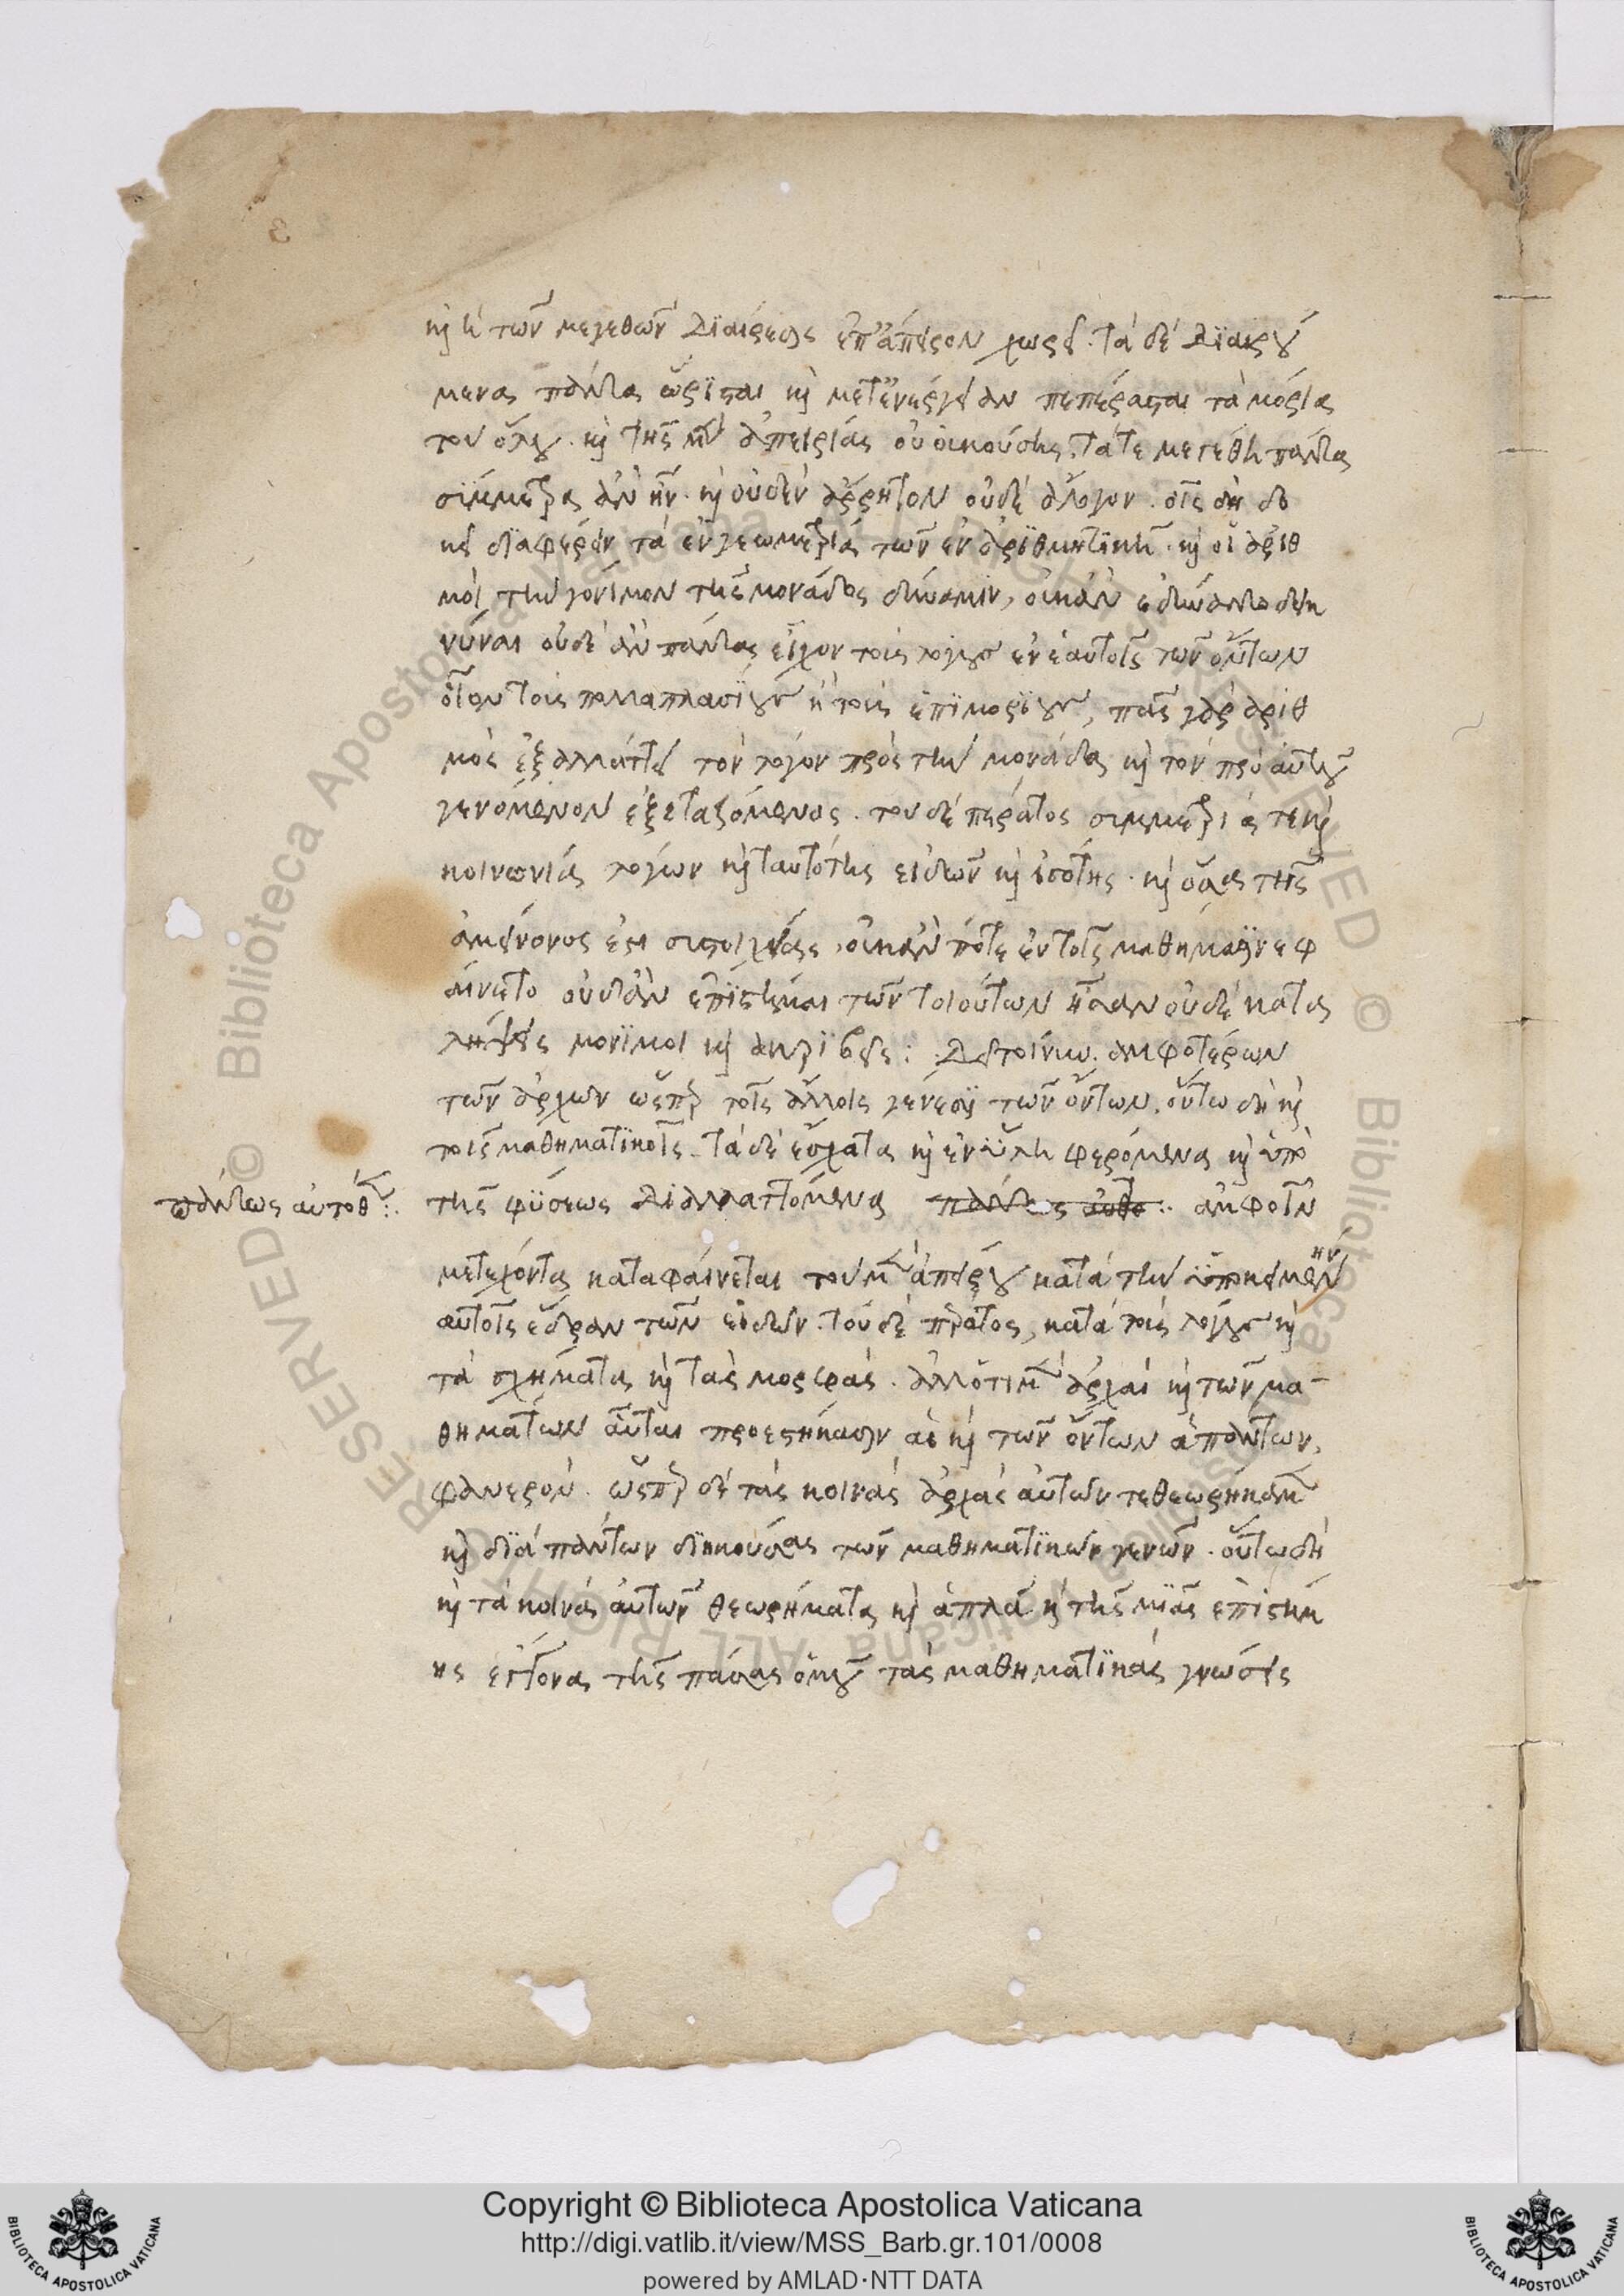 καὶ ἡ τῶν μεγεθῶν διαίρεσις ἐπ' ἄπειρον χωρεῖ. τὰ δὲ διαιρού
μενα πάντα ὥρισται καὶ μετ' ἐνέργειαν πεπέρασται τὰ μόρια
τοῦ ὅλου. καὶ τῆς μὲν ἀπειρίας οὐκ οὔσης, τά τε μεγέθη πάντα
σύμμετρα ἂν ἦν. καὶ οὐδὲν ἄρρητον οὐδὲ ἄλογον. οἷς δὴ δο
κεῖ διαφέρειν τὰ ἐν γεωμετρίᾳ τῶν ἐν ἀριθμητικῇ. καὶ οἱ ἀριθ
μοὶ τὴν γόνιμον τῆς μονάδος δύναμιν, οὐκ ἂν ἐδύναντο δεικ
νύναι οὐδ' ἂν πάντας εἶχον τοὺς λόγους ἐν ἑαυτοῖς τῶν ὄντων
οἷον τοὺς πολλαπλασίους ἢ τοὺς ἐπιμορίους, πᾶς γὰρ ἀριθ
μὸς ἐξαλλάττει τὸν λόγον πρὸς τὴν μονάδα καὶ τὸν πρὸ αὐτοῦ
γενόμενον ἐξεταζόμενος. τοῦ δὲ πέρατος συμμετρία τε καὶ
κοινωνία λόγων καὶ ταυτότης εἰδῶν καὶ ἰσότης. καὶ ὅσα τῆς
ἀμείνονος ἐστὶ συστοιχίας, οὐκ ἄν ποτε ἐν τοῖς μαθήμασιν ἐφ
αίνετο οὐδ' ἂν ἐπιστῆμαι τῶν τοιούτων ἦσαν οὐδὲ κατα
λήψεις μόνιμοι καὶ ἀκριβεῖς: Δεῖ τοίνυν ἀμφοτέρων
τῶν ἀρχῶν ὥσπερ τοῖς ἄλλοις γένεσι τῶν ὄντων. οὕτω δὴ καὶ
τοῖς μαθηματικοῖς. τὰ δὲ ἔσχατα καὶ ἐν ὕλῃ φερόμενα καὶ ὑπὸ
πάντως αὐτόθεν:
τῆς φύσεως διαπλαττόμενα πάντως αὐτόθεν: ἀμφοῖν
μετέχοντα καταφαίνεται τοῦ μὲν ἀπείρου κατὰ τὴν ὑποκειμένην
αὐτοῖς ἕδραν τῶν εἰδῶν. τοῦ δὲ πέρατος, κατὰ τοὺς λόγους καὶ
τὰ σχήματα καὶ τὰς μορφάς. ἀλλ' ὅτι μὲν ἀρχαὶ καὶ τῶν μα-
θημάτων αὗται προεστήκασιν αἱ καὶ τῶν ὄντων ἁπάντων,
φανερόν. ὥσπερ δὲ τὰς κοινὰς ἀρχὰς αὐτῶν τεθεωρήκαμεν
καὶ διὰ πάντων διηκούσας τῶν μαθηματικῶν γενῶν. οὕτω δὴ
καὶ τὰ κοινὰ αὐτῶν θεωρήματα καὶ ἁπλᾶ καὶ τῆς μιᾶς ἐπιστήμ
ης ἔκγονα τῆς πάσας ὁμοῦ τὰς μαθηματικὰς γνώσεις
Copyright © Biblioteca Apostolica Vaticana
http://digi.vatlib.it/view/MSS_Barb.gr.101/0008
powered by AMLAD·NTT DATA